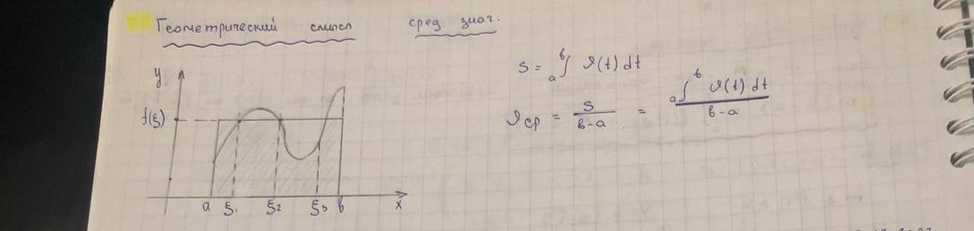 Геометрический смысл сред. знач.
y
f(ξ)
a ξ₁ ξ₂ ξ₃ b x
S = a∫b v(t) dt
vср = S/(b-a) = a∫b v(t) dt/(b-a)